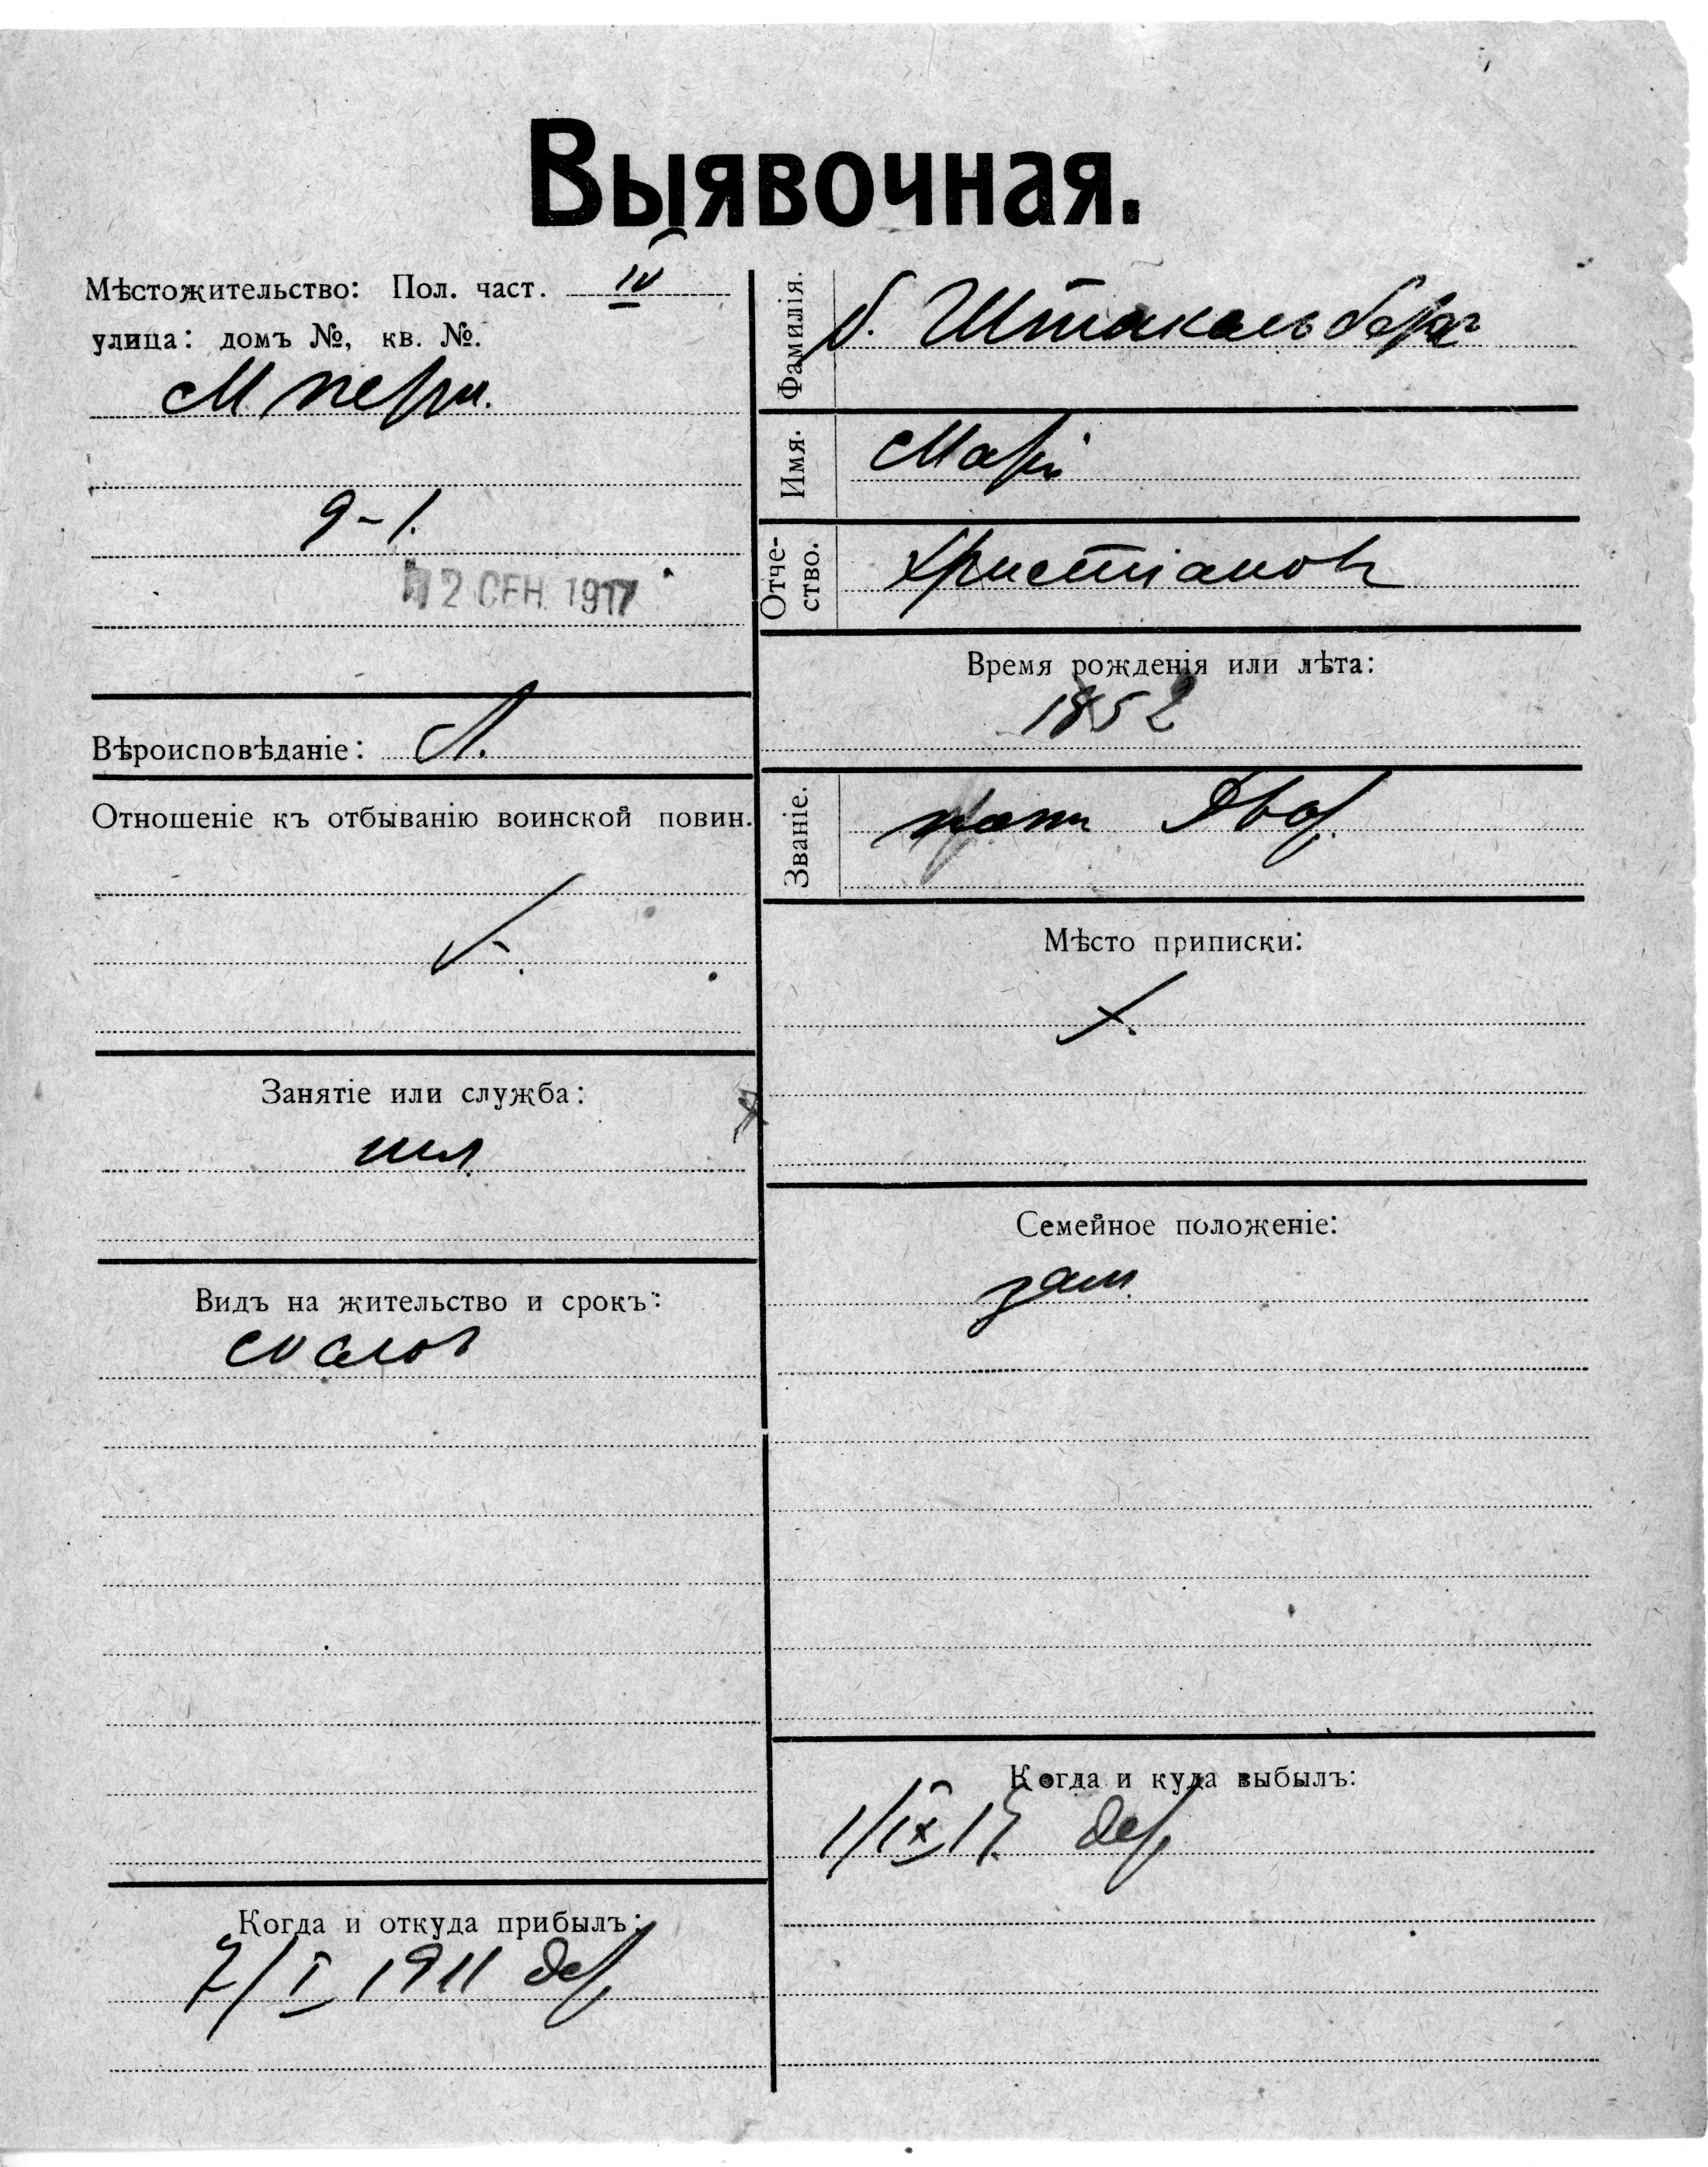 Выявочная.
Мѣстожительство: Пол. част. IV
улица: домъ №, кв. №.
9-1.
2 СЕН. 1917
Вѣроисповѣданіе: Л.
Отношеніе къ отбыванію воинской повин.
Занятіе или служба:
Видъ на жительство и срокъ:
Когда и откуда прибылъ:
7/I 1911 дер.
Фамилія. б. Штакельберг
Имя. Марі
Отче-
ство. Христіанов
Время рожденія или лѣта:
1852
Званіе. Двор.
Мѣсто приписки:
Семейное положеніе:
зам.
Когда и куда выбылъ:
1/IX 17 дер.